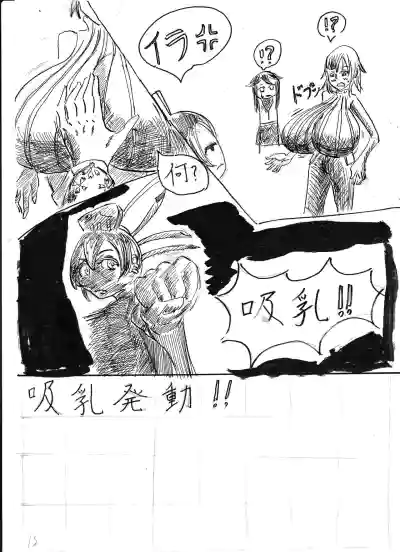 !?
!?
ドプン
イラ
何?
吸乳!!
吸乳発動!!
12